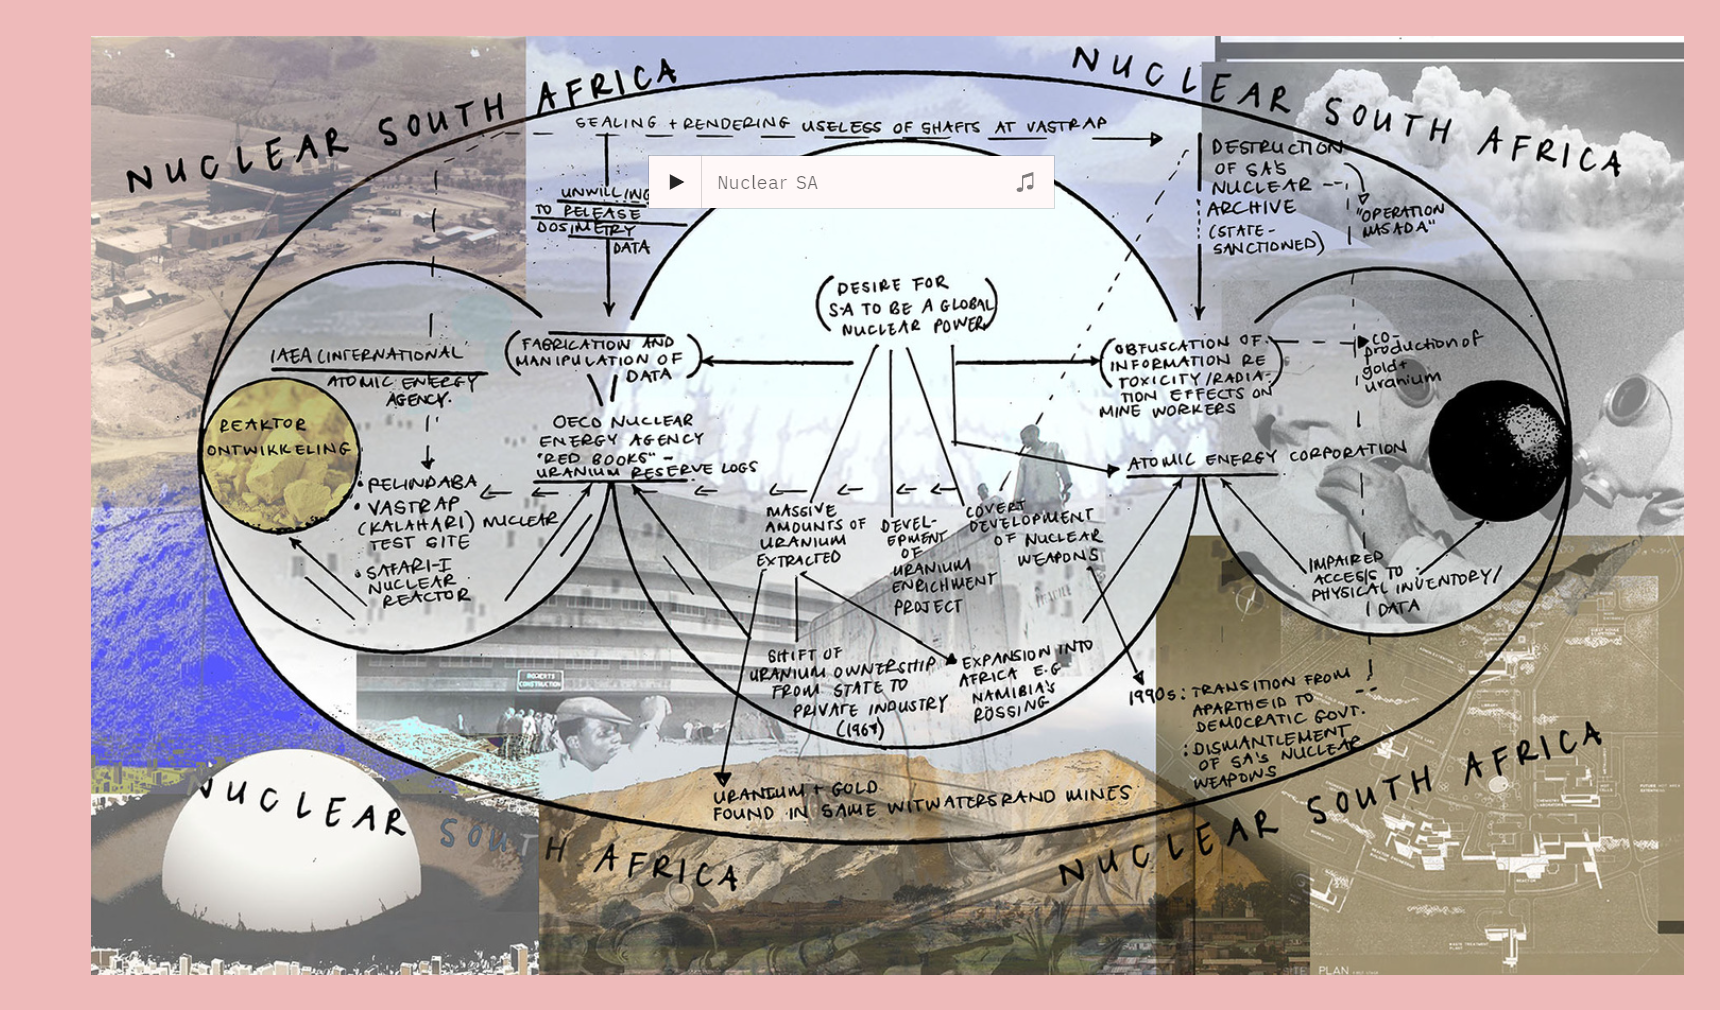 NUCLEAR SOUTH AFRICA
NUCLEAR SOUTH AFRICA
SEALING + RENDERING USELESS OF SHAFTS AT VASTRAP
Nuclear SA
UNWILLING
TO RELEASE
DOSIMETRY
DATA
DESTRUCTION
OF SA'S
NUCLEAR
ARCHIVE
(STATE-
SANCTIONED)
"OPERATION
MASADA"
(DESIRE FOR
SA TO BE A GLOBAL
NUCLEAR POWER)
IAEA (INTERNATIONAL
ATOMIC ENERGY
AGENCY.
(FABRICATION AND
MANIPULATION OF
DATA)
(OBFUSCATION OF
INFORMATION RE
TOXICITY/RADIA-
TION EFFECTS ON
MINE WORKERS
CO-
production of
gold +
uranium
REAKTOR
ONTWIKKELING
OECD NUCLEAR
ENERGY AGENCY
"RED BOOKS" -
URANIUM RESERVE LOGS
ATOMIC ENERGY CORPORATION
• PELINDABA
• VASTRAP
(KALAHARI) NUCLEAR
TEST SITE
• SAFARI-I
NUCLEAR
REACTOR
MASSIVE
AMOUNTS OF
URANIUM
EXTRACTED
DEVEL-
OPMENT
OF
URANIUM
ENRICHMENT
PROJECT
COVERT
DEVELOPMENT
OF NUCLEAR
WEAPONS
IMPAIRED
ACCESS TO
PHYSICAL INVENTORY/
DATA
SHIFT OF
URANIUM OWNERSHIP
FROM STATE TO
PRIVATE INDUSTRY
EXPANSION INTO
AFRICA E.G
NAMIBIA'S
RÖSSING
1990s: TRANSITION FROM
APARTHEID TO
DEMOCRATIC GOVT.
: DISMANTLEMENT
OF SA'S NUCLEAR
WEAPONS
ROBERTS
CONSTRUCTION
URANIUM + GOLD
FOUND IN SAME WITWATERSRAND MINES
NUCLEAR SOUTH AFRICA
NUCLEAR SOUTH AFRICA
SITE PLAN